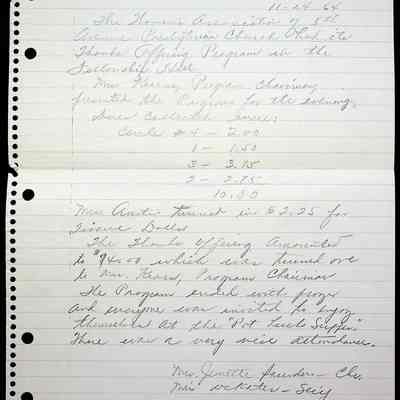 11-24-64
The Women's Association of 5th
Avenue Presbyterian Church had its
Thanks Offering Program in the
Fellowship Hall.
Mrs. Program Chairman
presented the Program for the evening.
Dues Collected
Circle # 4 - 2.00
1 - 1.50
3 - 3.75
2 - 2.75
10.00
Mrs. Austin turned in $2.25 for
Dolls
The Thanks Offering Amounted
to which was turned over
to Mrs. Program Chairman
The Program ended with prayer
and everyone was invited to enjoy
themselves at the "Pot Luck Supper"
There was a very nice attendance.
Mrs. Saunders - Ch.
Mrs Webster - Sec'y